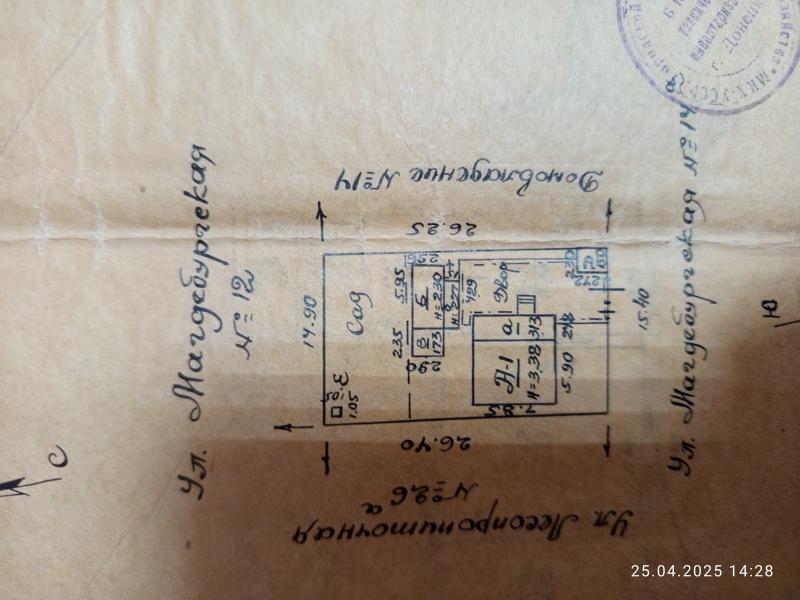 г. Донецк
МКХ-УССР
Домовладение №14
Ул. Магдебургская
№12
26.25
14.90
Сад
5.95
Б
Н=2.30
Н=2.27
4.29
Двор
2.72
15.40
Ул. Магдебургская №14
2.35
В
1.73
2.90
А-1
Н=3,38
а
3.13
2.48
5.90
7.85
З
1.05
26.40
С
Ю
Ул. Лесопропиточная
№26
а
25.04.2025 14:28